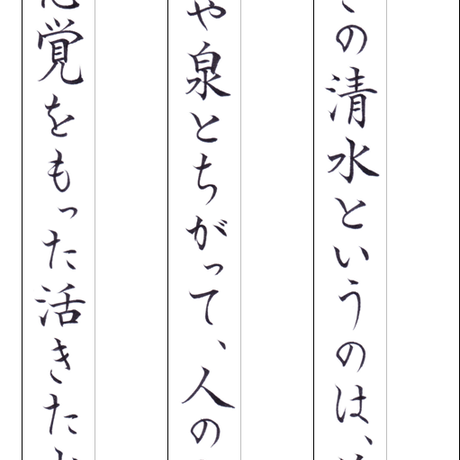 の清水というのは、
や泉とちがって、人の
覚をもった活きた